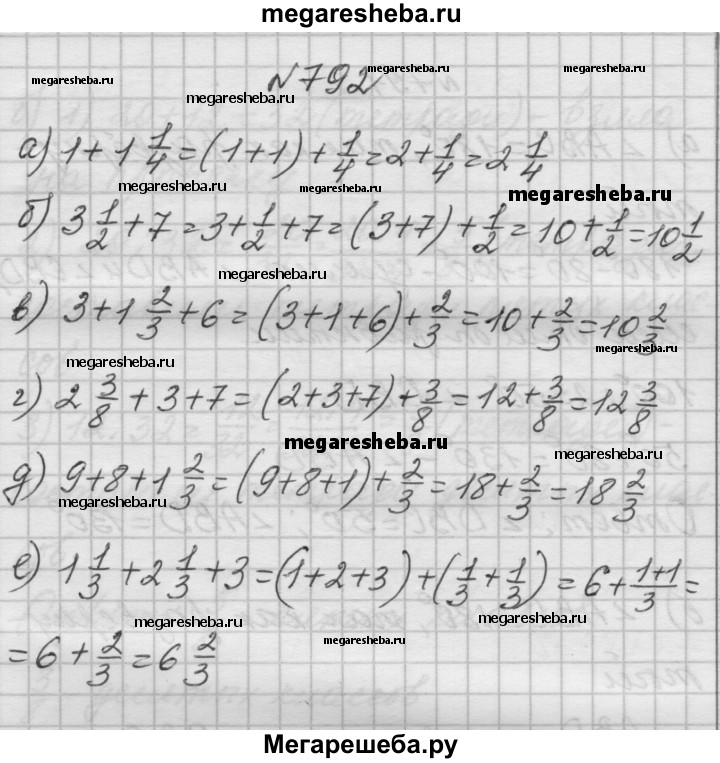 megaresheba.ru
megaresheba.ru №792 megaresheba.ru megaresheba.ru
megaresheba.ru
а) 1 + 1 1/4 = (1+1) + 1/4 = 2 + 1/4 = 2 1/4
megaresheba.ru megaresheba.ru megaresheba.ru
б) 3 1/2 + 7 = 3 + 1/2 + 7 = (3+7) + 1/2 = 10 + 1/2 = 10 1/2
megaresheba.ru
в) 3 + 1 2/3 + 6 = (3+1+6) + 2/3 = 10 + 2/3 = 10 2/3
megaresheba.ru megaresheba.ru
г) 2 3/8 + 3 + 7 = (2+3+7) + 3/8 = 12 + 3/8 = 12 3/8
megaresheba.ru megaresheba.ru
д) 9 + 8 + 1 2/3 = (9+8+1) + 2/3 = 18 + 2/3 = 18 2/3
megaresheba.ru
е) 1 1/3 + 2 1/3 + 3 = (1+2+3) + (1/3 + 1/3) = 6 + 1+1/3 =
megaresheba.ru megaresheba.ru megaresheba.ru
= 6 + 2/3 = 6 2/3
Мегарешеба.ру